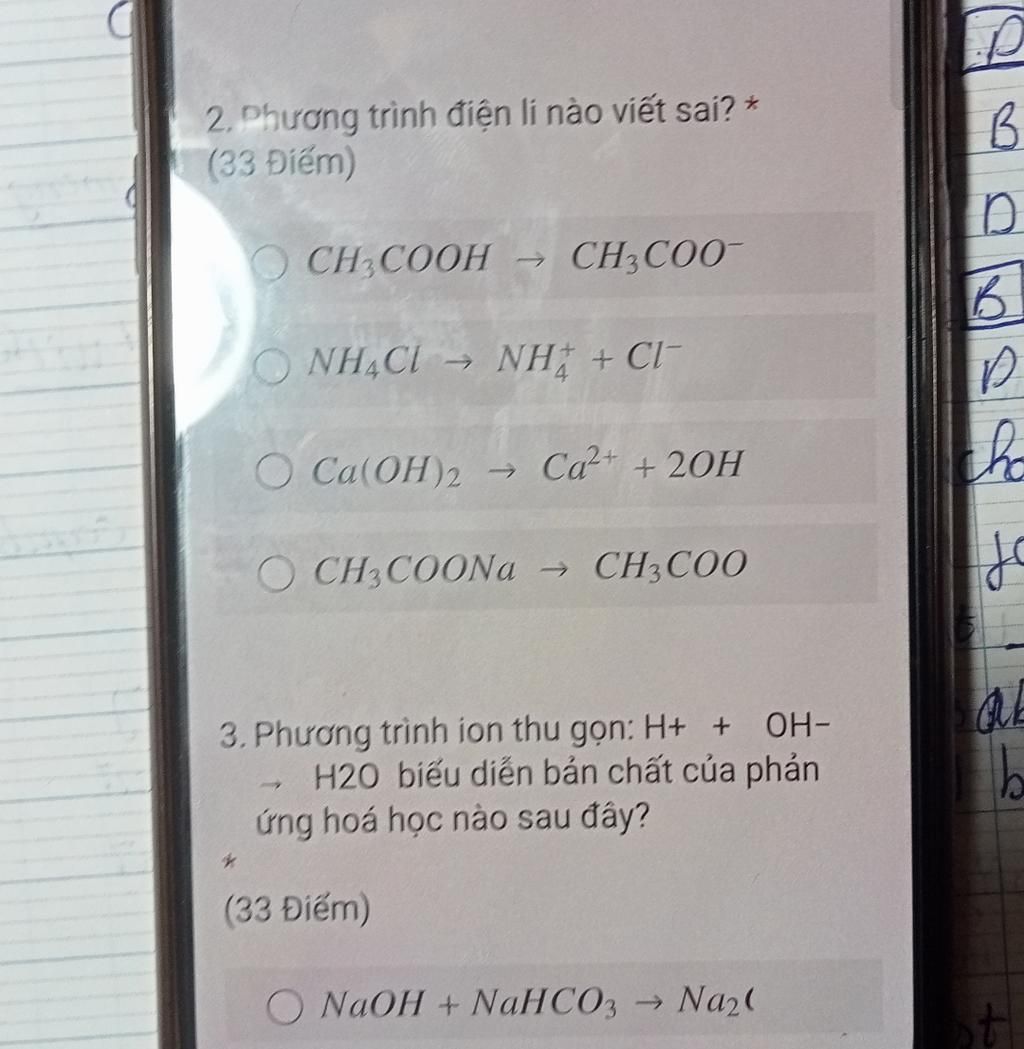 2. Phương trình điện li nào viết sai? *
(33 Điểm)
CH₃COOH → CH₃COO⁻
NH₄Cl → NH₄⁺ + Cl⁻
Ca(OH)₂ → Ca²⁺ + 2OH
CH₃COONa → CH₃COO
3. Phương trình ion thu gọn: H+ + OH−
→ H2O biểu diễn bản chất của phản
ứng hoá học nào sau đây?
*
(33 Điểm)
NaOH + NaHCO₃ → Na₂(
D
B
D
B
D